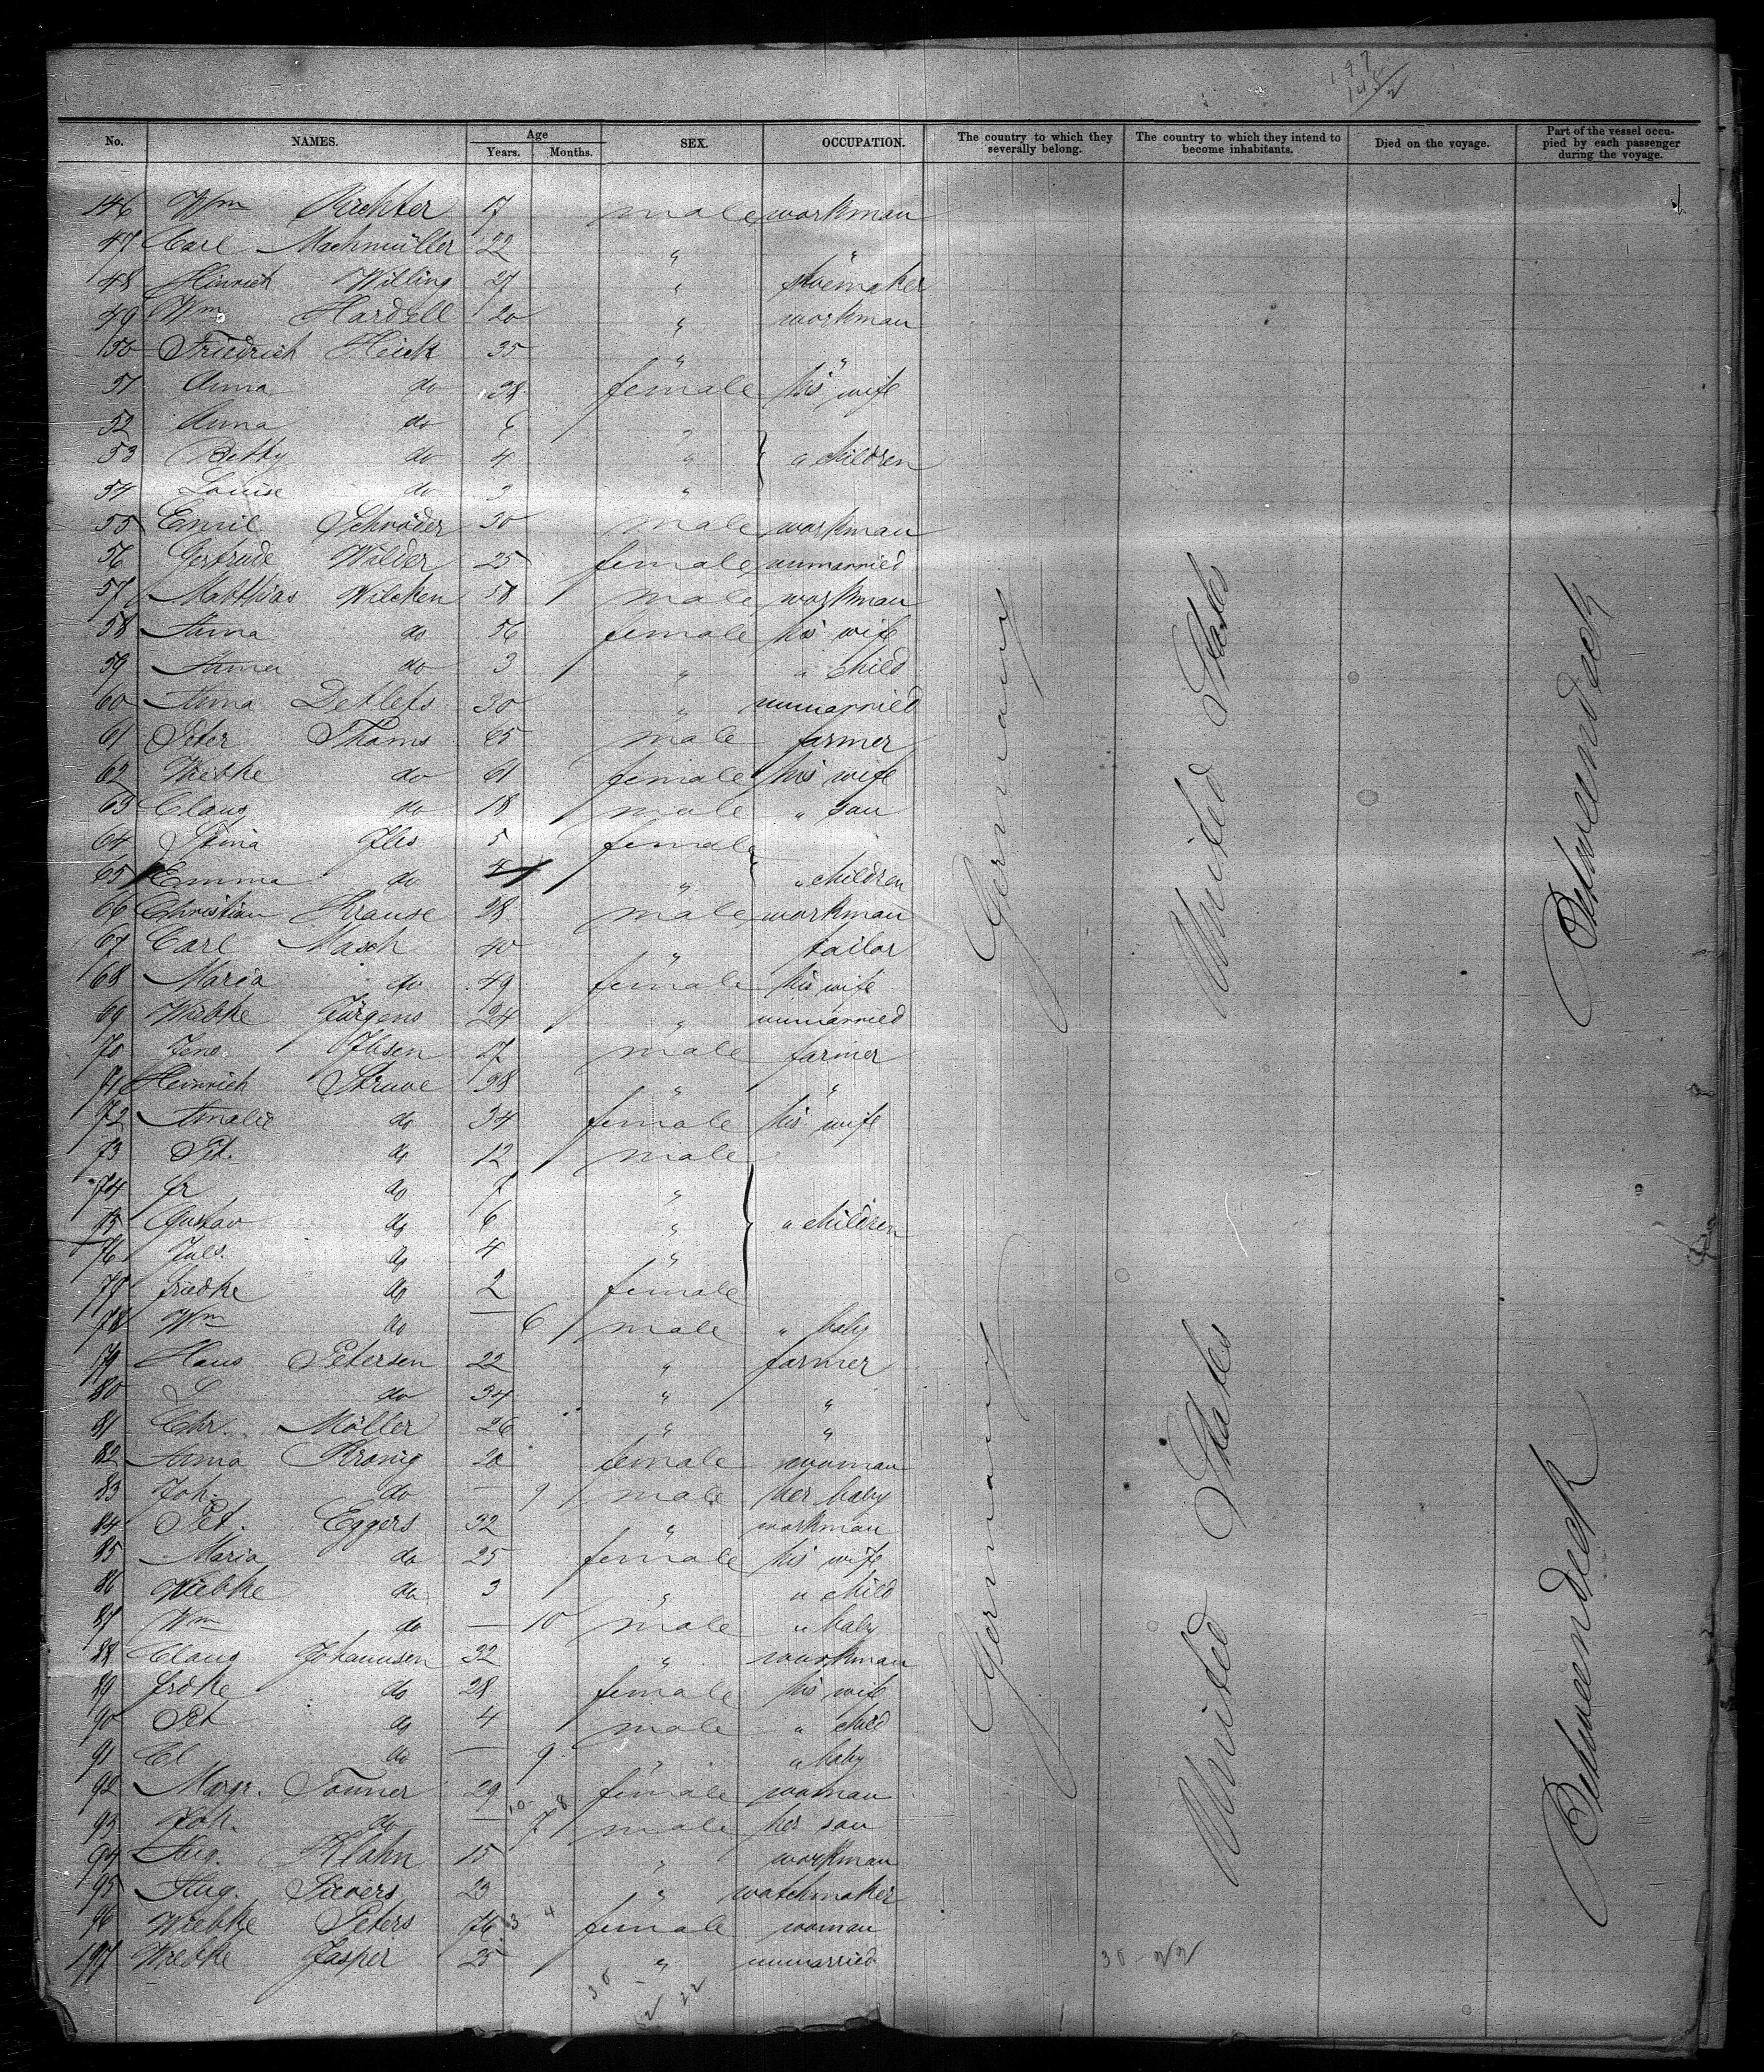 197
No. NAMES. Age Years. Months. SEX. OCCUPATION. The country to which they severally belong. The country to which they intend to become inhabitants. Died on the voyage. Part of the vessel occupied by each passenger during the voyage.
146 Wm Richter 17 male workman
47 Carl Machmüller 22 " "
48 Hinrich Willing 27 " shoemaker
49 Wm Hardell 20 " workman
150 Friedrich Heick 35 " "
51 Anna do 38 female his wife
52 Anna do 6 "
53 Betty do 4 " " children
54 Louise do 3 "
55 Emil Schröder 30 male workman
56 Gertrude Wilder 25 female unmarried
57 Matthias Wilcken 58 male workman
58 Anna do 56 female his wife
59 Anna do 3 " " child
60 Anna Detlefs 30 " unmarried
61 Peter Thoms 65 male farmer
62 Wiebke do 61 female his wife
63 Claus do 18 male " son
64 Stina Ifles 5 female
65 Emma do 4 " " children
66 Christian Krause 28 male workman
67 Carl Masch 40 " tailor
68 Maria do 49 female his wife
69 Wiebke Jürgens 24 " unmarried
70 Jens Ibsen 17 male farmer
71 Heinrich Struve 38 " "
72 Amalie do 34 female his wife
73 Pet. do 12 male
74 Fr do 7 "
75 Gustav do 6 " " children
76 Juls. do 4 "
77 Friedke do 2 female
78 Wm do — 6 male " baby
79 Hans Petersen 22 " farmer
80 do 34 " "
81 Chr. Möller 26 " "
82 Anna Kronig 20 female woman
83 Joh. do — 9 male her baby
84 Pet. Eggers 32 " workman
85 Maria do 25 female his wife
86 Wiebke do 3 " " child
87 Wm do — 10 male " baby
88 Claus Johannsen 32 " workman
89 Frdke do 28 female his wife
90 Pet do 4 male " child
91 Cl do — 9 " " baby
92 Margr. Tonner 29 female woman
93 Joh. do — 7 male her son
94 Aug. Klahn 15 " workman
95 Aug. Sievers 23 " watchmaker
96 Wiebke Peters 76 female woman
197 Wiebke Jasper 25 " unmarried
Germany United States Betweendeck
Germany United States Betweendeck
30 - 22
30 - 22